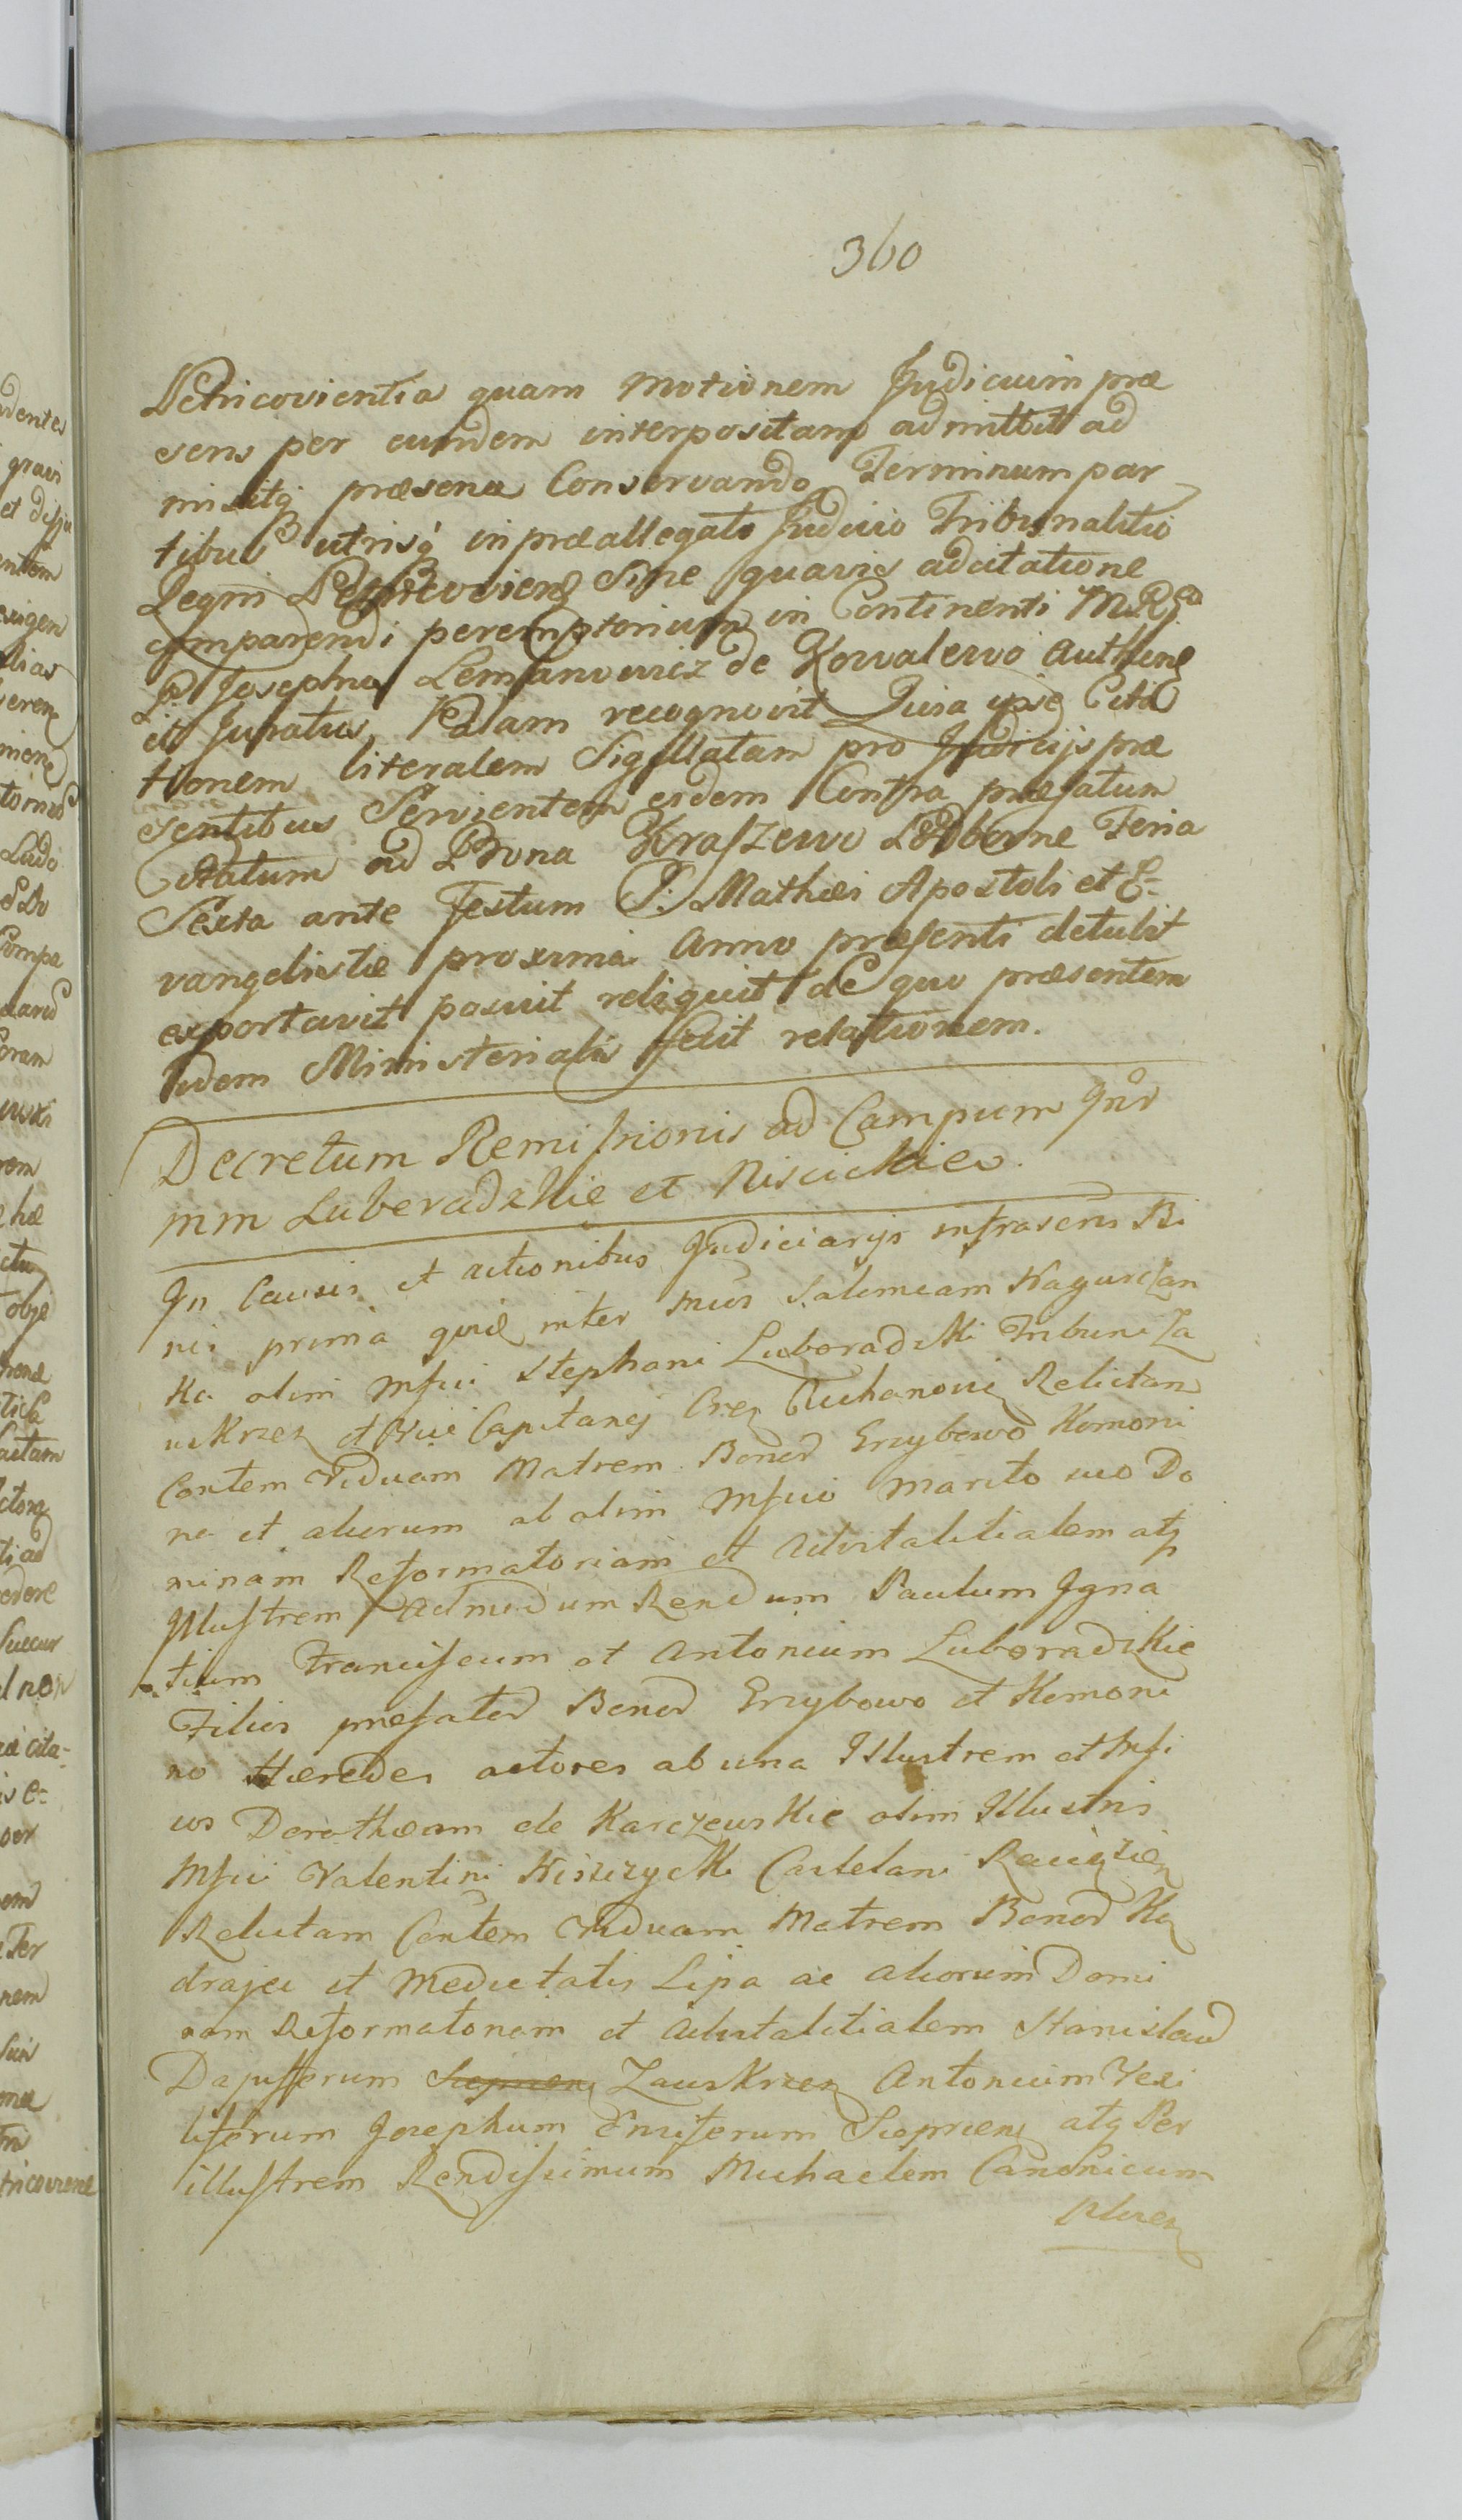 360
Petricoviensia quam Motionem Judicium præ
sens per eundem interpositam admittit ad
misitq præsens Conservando Terminum par
tibus utrisq in præallegato Judicio Tribunalitio
Regni Petricoviens Sine quavis adcitatione
comparendi peremptorium in Continenti
Josephus Lemanowicz de Kowalewo Authene
et Juratus Palam recognovit Quia ipse Cita
tionem literalem Sigillatam pro Judicijs præ
sentibus Servientem eidem Contra præfatum
Citatum ad Bona Kraszewo Feria
Sexta ante Festum S. Mathæi Apostoli et E-
vangelistæ proxima Anno præsenti detulit
exportavit posuit reliquit de quo præsentem
idem Ministerialis fecit relationem.
Decretum Remissionis ad Campum Gnr
mm Luberadzkie et Niscickie.
In Causis et actionibus Judiciarijs infrascris Bi
nis prima quid inter Mus Salomeam Nagurczan
ka olim Mfici Stephani Luboradzki Tribuni Za
wkrzen et Capitanej Relictam
Contem Viduam Matrem Bonor Grzybowo Komoni
no et aliorum ab olim Mfico Marito suo Do
minam Reformatoriam et Advitalitialem atq
Illustrem Admodum Rendum Paulum Igna
tium Franciscum et Antonium Luboradzkie
Filios præfator Bonor Grzybowo et Komoni
no Hæredes actores ab una Illustrem et Mfi
cos Dorotheam de Karczewskie olim Illustris
Mfici Valentini Niszczycki Castelani Raciązien
Relictam Contem Viduam Matrem Bonor Ko
drajec et Medietatis Lipa ac aliorum Domi
nam Reformatoriam et Advitalitialem Stanislaum
Dapiferum Zawkrzen Antonium Vexi
liferum Josephum Ensiferum Sieprcens atq Per
illustrem Rendissimum Michaelem Canonicum
Plocen